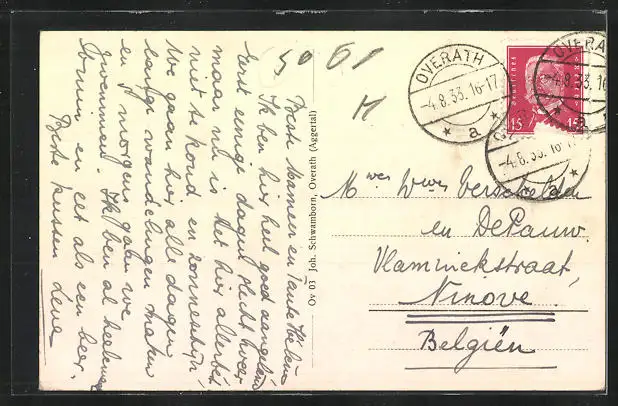 50 61
M
Beste Mameer en Tante Helene
Ik ben hier heel goed aangeland
Eerst eenige dagen slecht weer
maar nu is het hier allerbest
niet te koud en zonneschijn,
We gaan hier alle dagen
lange wandelingen maken
en 's morgens gaan we
zwemmen. Ik ben al heelemaal
bruin en eet als een beer.
Beste kussen
Ov 03 Joh. Schwamborn, Overath (Aggertal)
OVERATH
-4.8.33. 16-17
* a *
OVERA
-4.8.33. 16
-4.8.33. 16-17
* a *
Deutsches Reich
15 15
Mwes Wwes Verschelden
en DePauw
Vlaminckstraat
Ninove
Belgiën